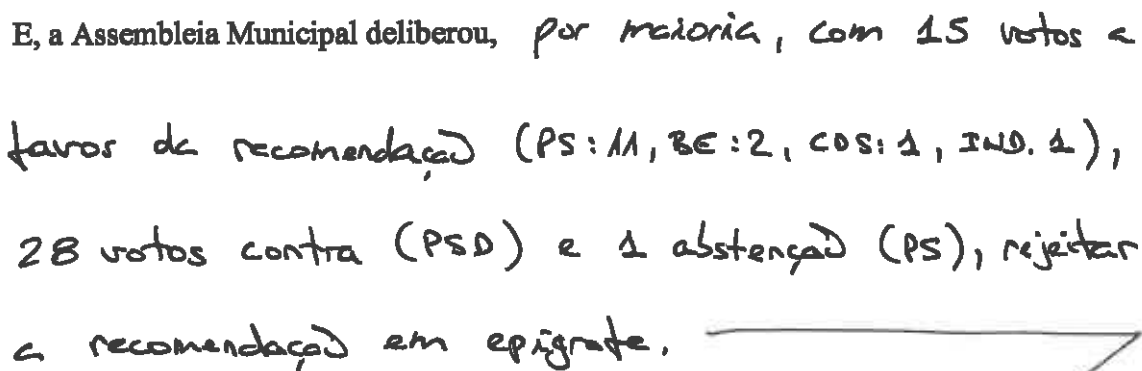 E, a Assembleia Municipal deliberou, por maioria, com 15 votos a
favor da recomendação (PS: 11, BE: 2, CDS: 1, IND. 1),
28 votos contra (PSD) e 1 abstenção (PS), rejeitar
a recomendação em epígrafe.